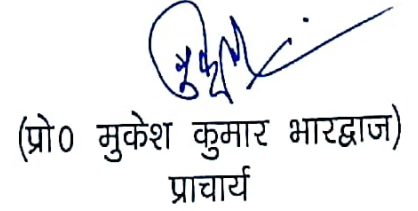 (प्रो० मुकेश कुमार भारद्वाज)
प्राचार्य